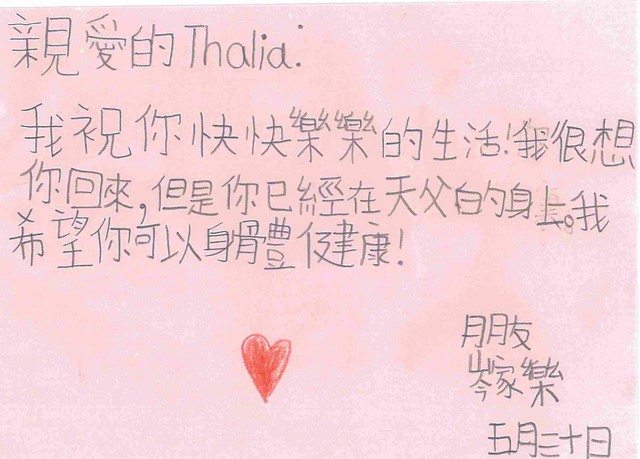 親愛的Thalia:
我祝你快快樂樂的生活!我很想
你回來,但是你已經在天父白的身上。我
希望你可以身體健康!
朋友
岑家樂
五月三十日